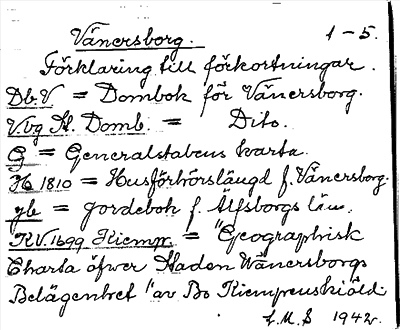 Vänersborg. 1-5.
Förklaring till förkortningar.
Db.V = Dombok för Vänersborg.
V.bg St. Domb. = Dito.
G = Generalstabens karta.
H 1810 = Husförhörslängd f. Vänersborg.
jb = jordebok f. Älfsborgs län.
K.V. 1699 Kiemp. = "Geographisk
Charta öfwer Staden Wänersborgs
Belägenhet" av Bo Kiempenskiöld.
1942.